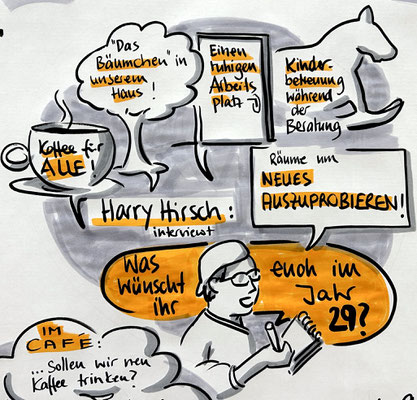 "Das
Bäumchen" in
unserem
Haus!
Einen
ruhigen
Arbeits
platz
Kinder-
betreuung
während
der
Beratung
Kaffee für
ALLE!
Räume um
NEUES
AUSZUPROBIEREN!
Harry Hirsch:
interviewt
Was
wünscht
ihr
euch im
Jahr
29?
IM
CAFÉ:
...Sollen wir nen
Kaffee trinken?